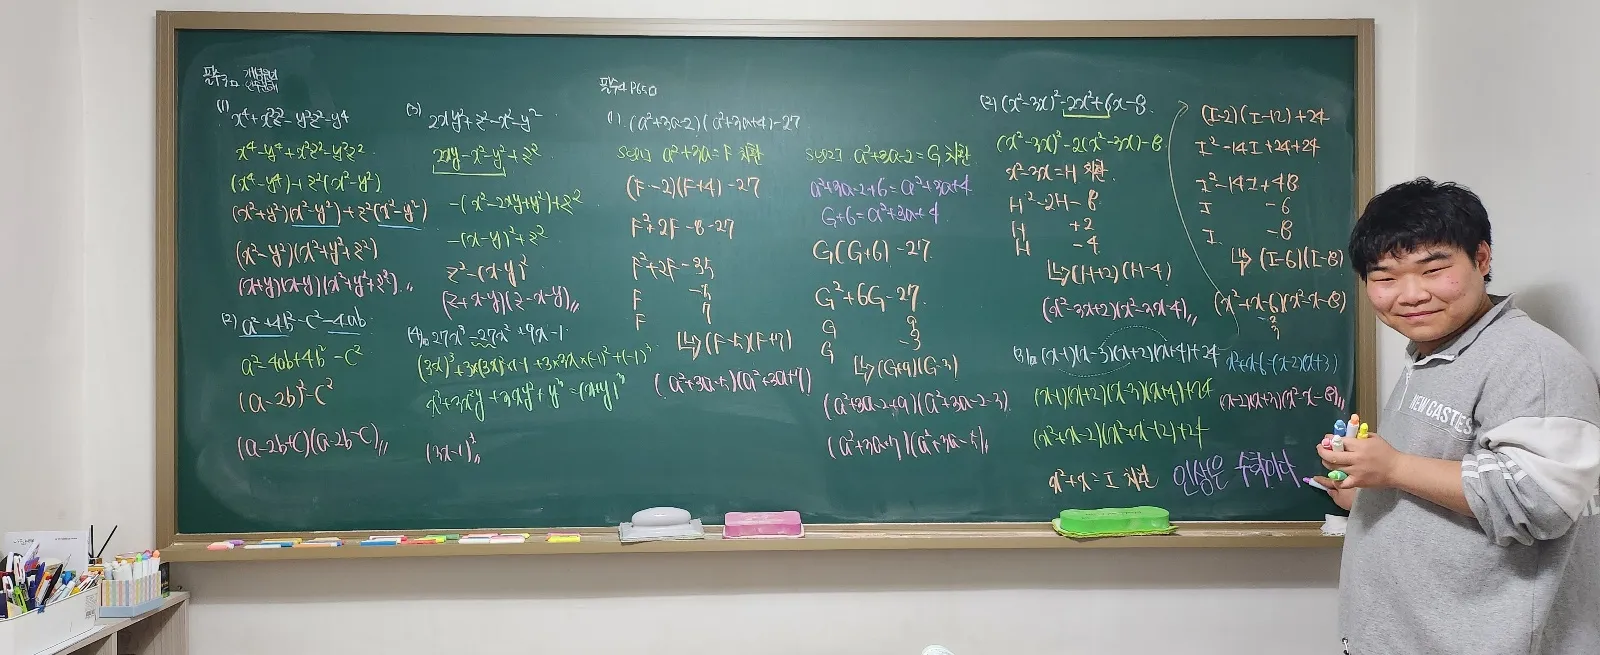 필수3
(1) x⁴+x²z²-y²z²-y⁴
x⁴-y⁴+x²z²-y²z²
(x⁴-y⁴)+z²(x²-y²)
(x²+y²)(x²-y²)+z²(x²-y²)
(x²-y²)(x²+y²+z²)
(x+y)(x-y)(x²+y²+z²)
(2) a²+4b²-c²-4ab
a²-4ab+4b²-c²
(a-2b)²-c²
(a-2b+c)(a-2b-c)
(3) 2xy+z²-x²-y²
2xy-x²-y²+z²
-(x²-2xy+y²)+z²
-(x-y)²+z²
z²-(x-y)²
(z+x-y)(z-x-y)
(4) 27x³-27x²+9x-1
(3x)³+3×(3x)²×-1+3×3x×(-1)²+(-1)³
x³+3x²y+3xy²+y³=(x+y)³
필수4 P65
(1). (a²+3a-2)(a²+3a+4)-27
a²+3a=F 치환
(F-2)(F+4)-27
F²+2F-8-27
F²+2F-35
F -5
F 7
↳(F-5)(F+7)
(a²+3a-5)(a²+3a+7)
a²+3a-2=G 치환
a²+3a-2+6=a²+3a+4
G+6=a²+3a+4
G(G+6)-27
G²+6G-27
G 9
G -3
↳(G+9)(G-3)
(a²+3a-2+9)(a²+3a-2-3)
(a²+3a+7)(a²+3a-5)
(2) (x²-3x)²-2x²+6x-8
(x²-3x)²-2(x²-3x)-8
x²-3x=H 치환
H²-2H-8
H +2
H -4
↳(H+2)(H-4)
(x²-3x+2)(x²-3x-4)
(3) (x-1)(x-3)(x+2)(x+4)+24
(x-1)(x+2)(x-3)(x+4)+24
(x²+x-2)(x²+x-12)+24
x²+x=I 치환
(I-2)(I-12)+24
I²-14I+24+24
I²-14I+48
I -6
I -8
↳(I-6)(I-8)
(x²+x-6)(x²-x-8)
-2
3
x²+x-6=(x-2)(x+3)
(x-2)(x+3)(x²-x-8)
인생은 수학이다
NEW CASTES